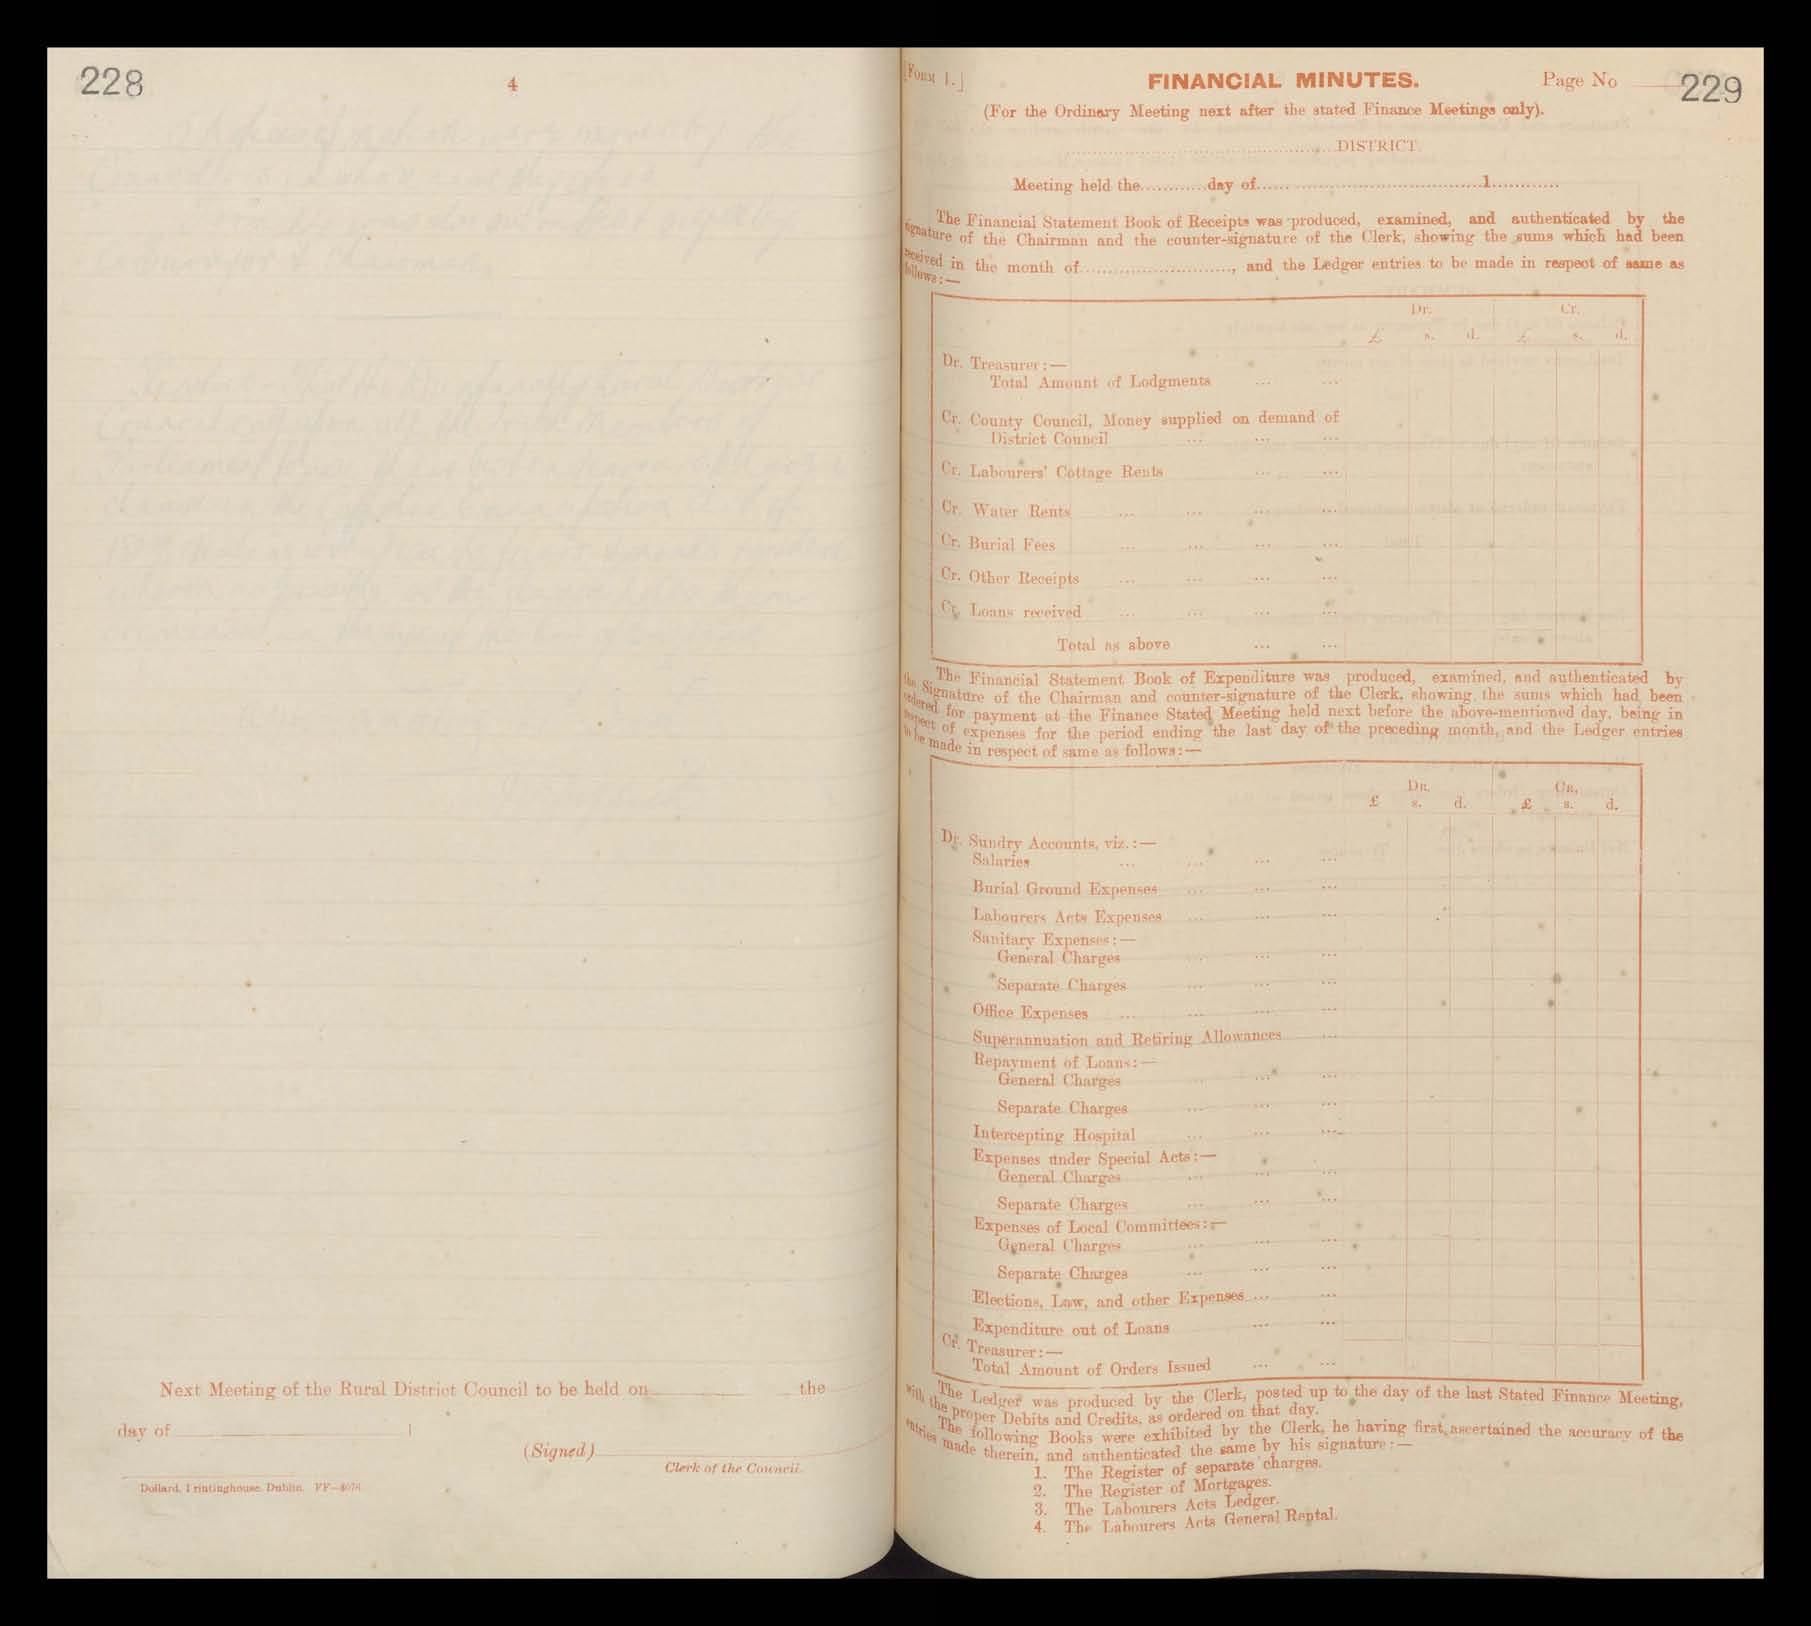 228
4
Next Meeting of the Rural District Council to be held on the
day of 1
(Signed)
Clerk of the Council.
Dollard, Printinghouse, Dublin.
[Form 1.]
FINANCIAL MINUTES.
Page No
229
(For the Ordinary Meeting next after the stated Finance Meetings only).
DISTRICT.
Meeting held the............day of............1............
The Financial Statement Book of Receipts was produced, examined, and authenticated by the
signature of the Chairman and the counter-signature of the Clerk, showing the sums which had been
received in the month of............, and the Ledger entries to be made in respect of same as
follows:—
Dr. Cr.
£ s. d. £ s. d.
Dr. Treasurer:—
Total Amount of Lodgments ... ...
Cr. County Council, Money supplied on demand of
District Council ... ... ...
Cr. Labourers' Cottage Rents ... ...
Cr. Water Rents ... ... ... ...
Cr. Burial Fees ... ... ... ...
Cr. Other Receipts ... ... ... ...
Cr. Loans received ... ... ... ...
Total as above ... ...
The Financial Statement Book of Expenditure was produced, examined, and authenticated by
the Signature of the Chairman and counter-signature of the Clerk, showing the sums which had been
ordered for payment at the Finance Stated Meeting held next before the above-mentioned day, being in
respect of expenses for the period ending the last day of the preceding month, and the Ledger entries
to be made in respect of same as follows:—
Dr. Cr.
£ s. d. £ s. d.
Dr. Sundry Accounts, viz.:—
Salaries ... ... ... ...
Burial Ground Expenses ... ... ...
Labourers Acts Expenses ... ... ...
Sanitary Expenses:—
General Charges ... ... ...
Separate Charges ... ... ...
Office Expenses ... ... ... ...
Superannuation and Retiring Allowances ...
Repayment of Loans:—
General Charges ... ... ...
Separate Charges ... ... ...
Intercepting Hospital ... ... ...
Expenses under Special Acts:—
General Charges ... ... ...
Separate Charges ... ... ...
Expenses of Local Committees:—
General Charges ... ... ...
Separate Charges ... ... ...
Elections, Law, and other Expenses ... ...
Expenditure out of Loans ... ...
Cr. Treasurer:—
Total Amount of Orders Issued ... ...
The Ledger was produced by the Clerk, posted up to the day of the last Stated Finance Meeting,
with the proper Debits and Credits, as ordered on that day.
The following Books were exhibited by the Clerk, he having first ascertained the accuracy of the
entries made therein, and authenticated the same by his signature:—
1. The Register of separate charges.
2. The Register of Mortgages.
3. The Labourers Acts Ledger.
4. The Labourers Acts General Rental.